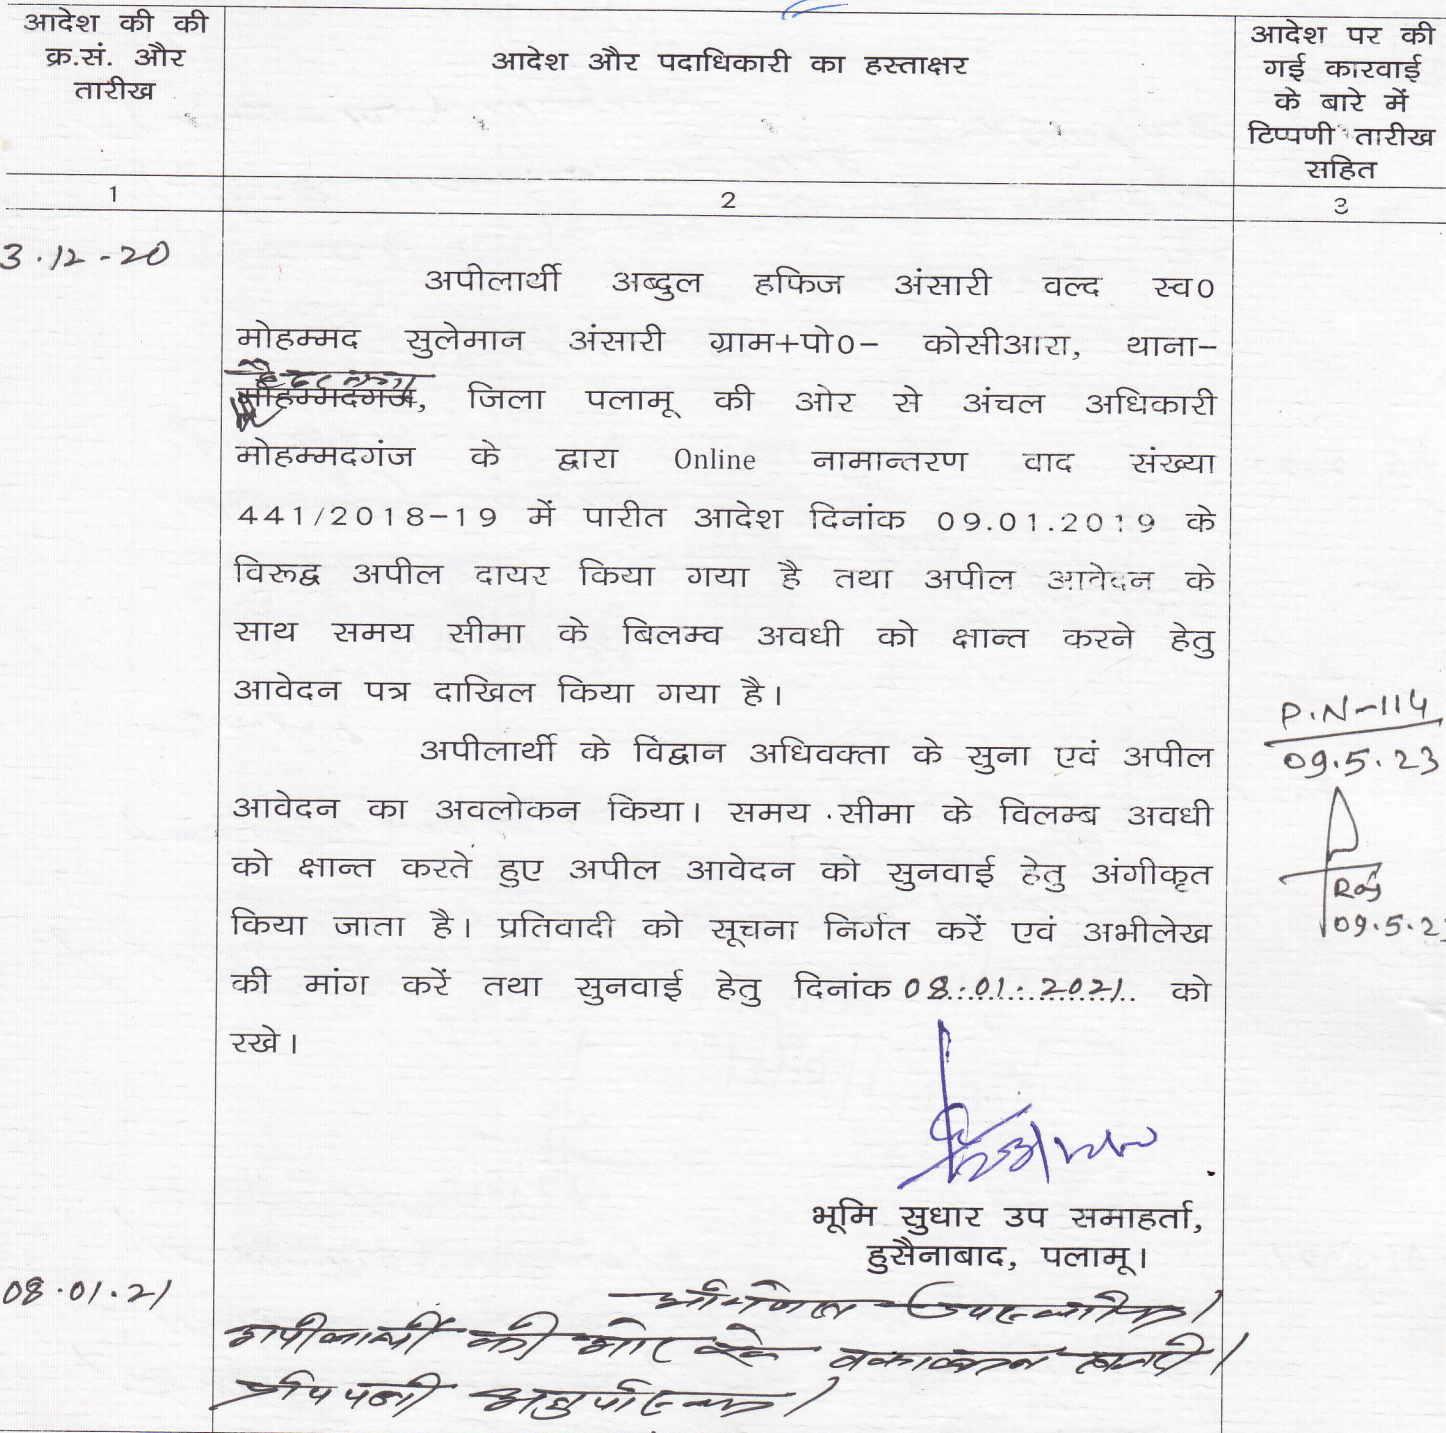 आदेश की की
क्र.सं. और
तारीख
आदेश और पदाधिकारी का हस्ताक्षर
आदेश पर की
गई कारवाई
के बारे में
टिप्पणी तारीख
सहित
1
2
3
3.12-20
अपीलार्थी अब्दुल हफिज अंसारी वल्द स्व0
मोहम्मद सुलेमान अंसारी ग्राम+पो0- कोसीआरा, थाना-
हैदरनगर
मोहम्मदगंज, जिला पलामू की ओर से अंचल अधिकारी
मोहम्मदगंज के द्वारा Online नामान्तरण वाद संख्या
441/2018-19 में पारीत आदेश दिनांक 09.01.2019 के
विरूद्व अपील दायर किया गया है तथा अपील आवेदन के
साथ समय सीमा के बिलम्व अवधी को क्षान्त करने हेतु
आवेदन पत्र दाखिल किया गया है।
अपीलार्थी के विद्वान अधिवक्ता के सुना एवं अपील
आवेदन का अवलोकन किया। समय सीमा के विलम्ब अवधी
को क्षान्त करते हुए अपील आवेदन को सुनवाई हेतु अंगीकृत
किया जाता है। प्रतिवादी को सूचना निर्गत करें एवं अभीलेख
की मांग करें तथा सुनवाई हेतु दिनांक 08.01.2021 को
रखे।
P.N-114
09.5.23
09.5.2
भूमि सुधार उप समाहर्ता,
हुसैनाबाद, पलामू।
08.01.21
अपीलार्थी की ओर से वकालतन हाजरी।